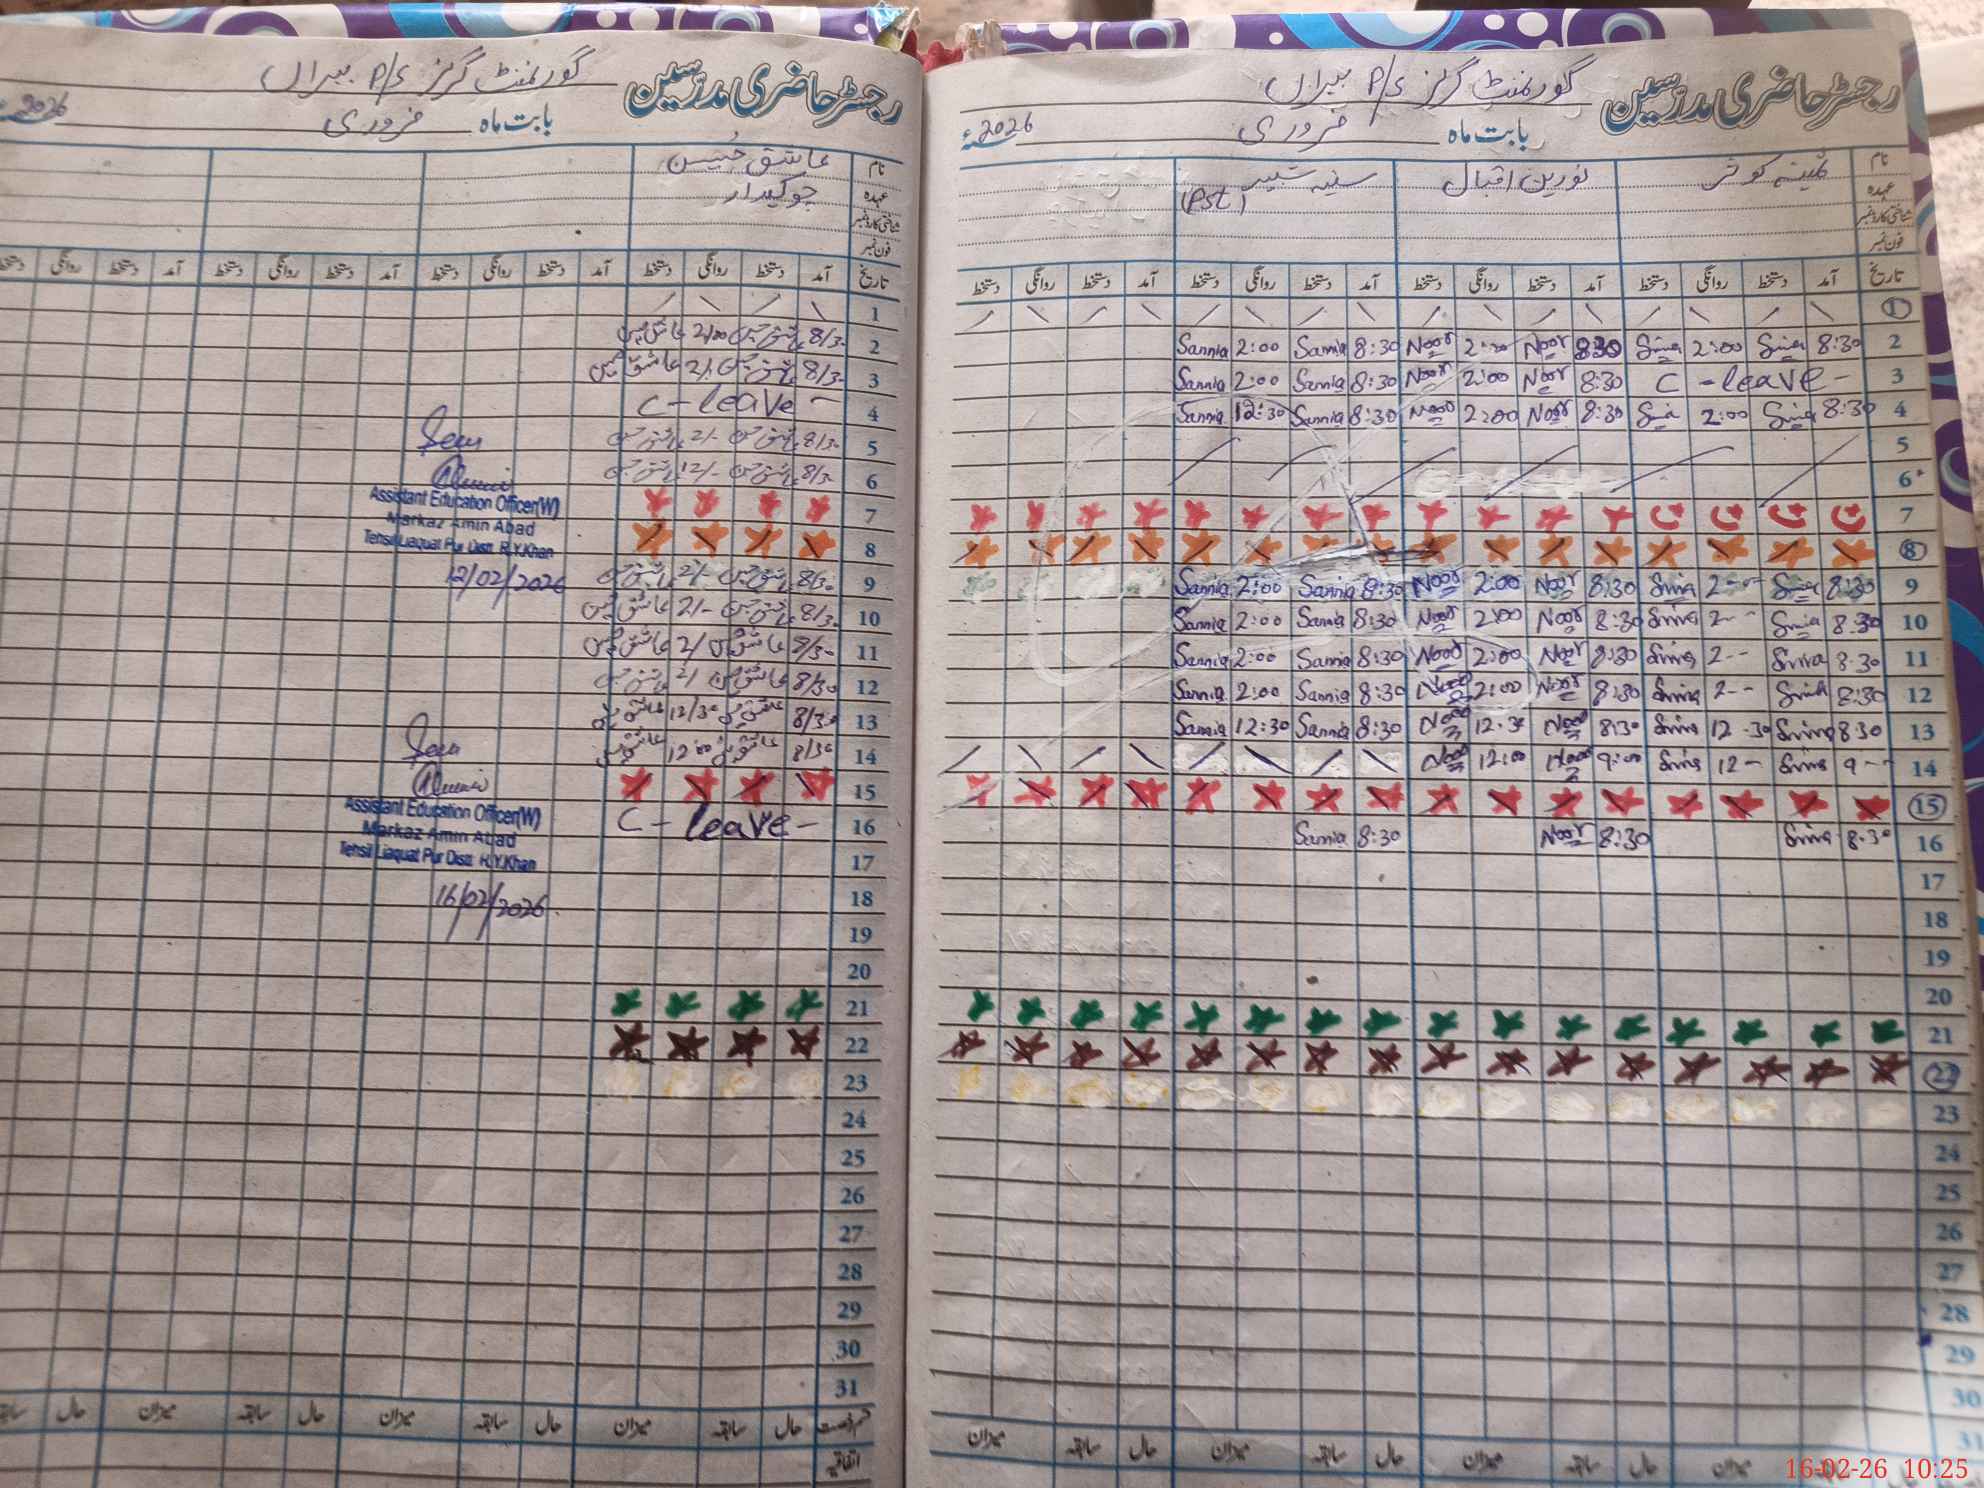 رجسٹر حاضری مدرسین گورنمنٹ گرلز P/S بیراں
بابت ماہ فروری 2026ء
نام ثمینہ کوثر نورین اقبال سنیہ شبیر
عہدہ (PST)
شناختی کارڈ نمبر
فون نمبر
تاریخ آمد دستخط روانگی دستخط آمد دستخط روانگی دستخط آمد دستخط روانگی دستخط آمد دستخط روانگی دستخط
1
2 8:30 2:00 8:30 Noor Noor 8:30 Sannia 2:00 Sannia
3 C - leave - 8:30 Noor 2:00 Noor 8:30 Sannia 2:00 Sannia
4 8:30 2:00 8:30 Noor 2:00 Noor 8:30 Sannia 12:30 Sannia
5
6
7
8
9 8:30 8:30 Noor 2:00 Noor 8:30 Sannia 2:00 Sannia
10 8:30 8:30 Noor 2:00 Noor 8:30 Sannia 2:00 Sannia
11 8:30 8:30 Noor 2:00 Noor 8:30 Sannia 2:00 Sannia
12 8:30 8:30 Noor 2:00 Noor 8:30 Sannia 2:00 Sannia
13 8:30 12:30 8:30 Noor 12:30 Noor 8:30 Sannia 12:30 Sannia
14 9-- 12- 9:00 Noor 12:00 Noor
15
16 8:30 8:30 Noor 8:30 Sannia
17
18
19
20
21
22
23
24
25
26
27
28
29
30
31
حال سابقہ میزان حال سابقہ میزان حال سابقہ میزان
رجسٹر حاضری مدرسین گورنمنٹ گرلز P/S بیراں
بابت ماہ فروری 2026ء
نام عاشق حسین
عہدہ چوکیدار
شناختی کارڈ نمبر
فون نمبر
تاریخ آمد دستخط روانگی دستخط آمد دستخط روانگی دستخط آمد دستخط روانگی دستخط آمد دستخط روانگی دستخط
1
2 8/30 عاشق حسین 2/00 عاشق حسین
3 8/30 عاشق حسین 2/- عاشق حسین
4 C - leave -
5 8/30 عاشق حسین 2/- عاشق حسین
6 8/30 عاشق حسین 12/- عاشق حسین
7
8
Assistant Education Officer(W)
Markaz Amin Abad
Tehsil Liaquat Pur Distt. R.Y.Khan
12/02/2026
9 8/30 عاشق حسین 2/- عاشق حسین
10 8/30 عاشق حسین 2/- عاشق حسین
11 8/30 عاشق حسین 2/ عاشق حسین
12 8/30 عاشق حسین 2/ عاشق حسین
13 8/30 عاشق حسین 12/30 عاشق حسین
14 8/30 عاشق حسین 12:00 عاشق حسین
15
16 C - leave -
Assistant Education Officer(W)
Markaz Amin Abad
Tehsil Liaquat Pur Distt. R.Y.Khan
16/02/2026
17
18
19
20
21
22
23
24
25
26
27
28
29
30
31
حال سابقہ میزان حال سابقہ میزان حال سابقہ میزان حال سابقہ
16-02-26 10:25